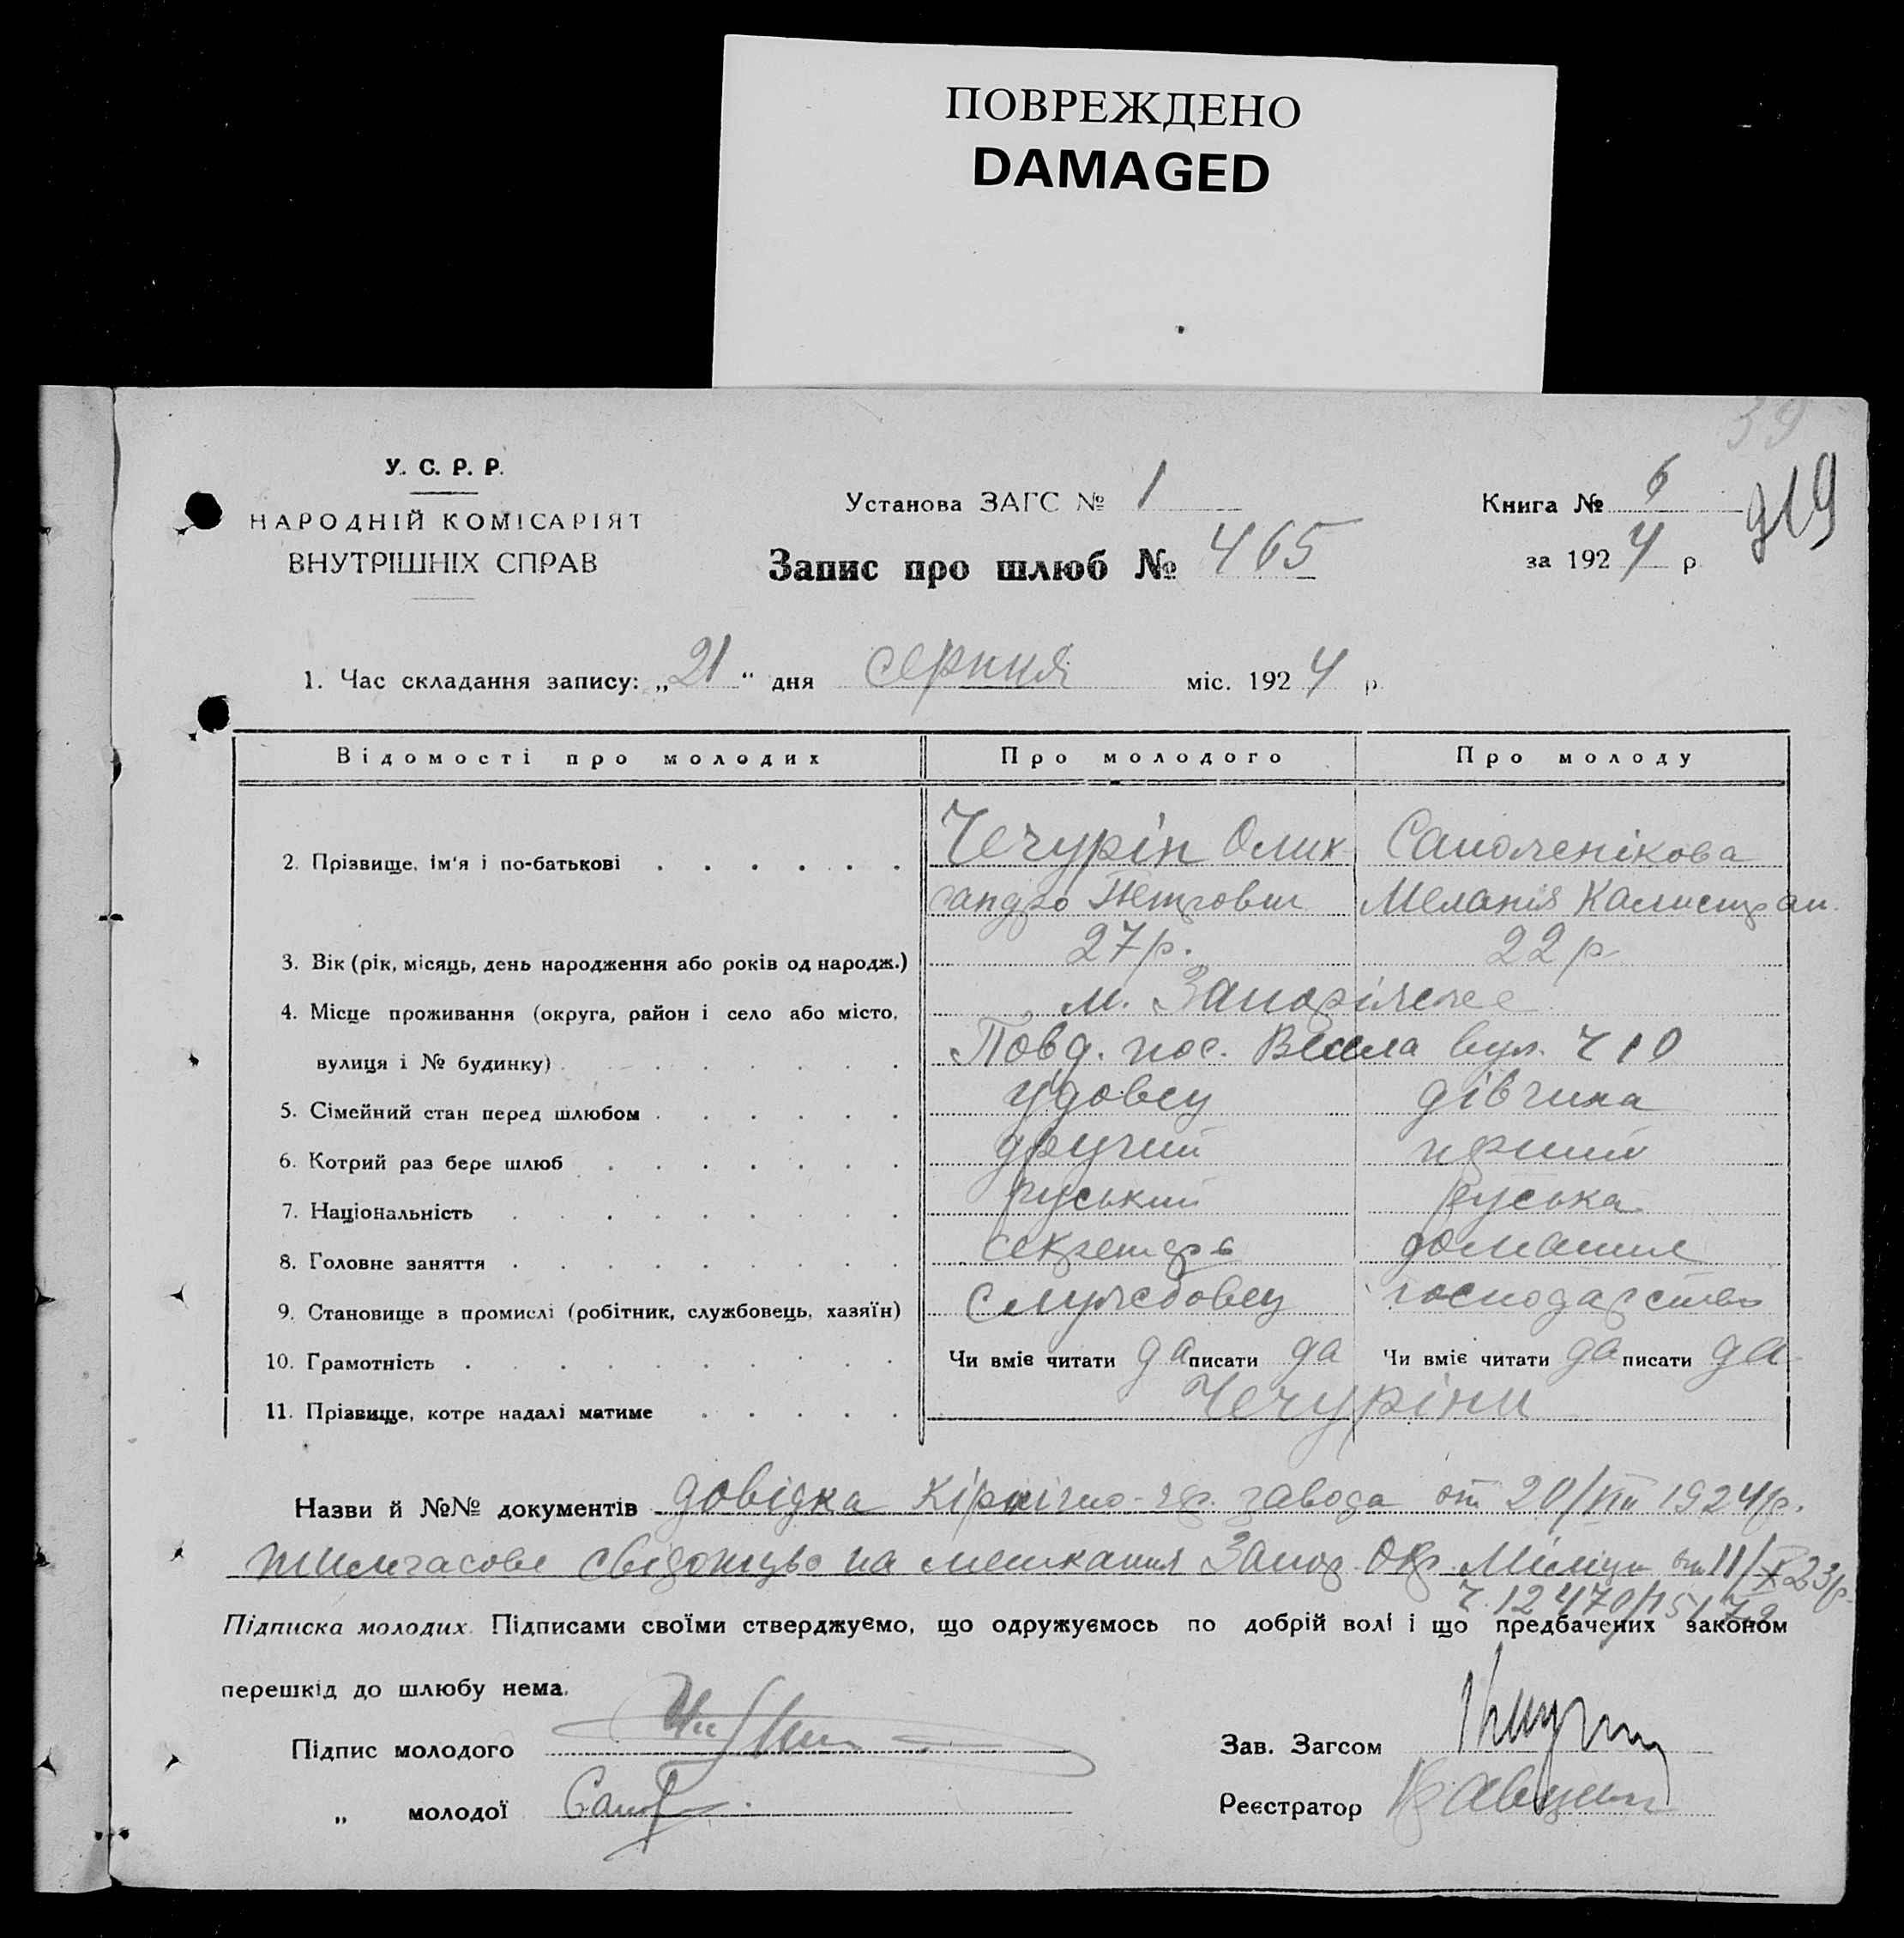 ПОВРЕЖДЕНО
DAMAGED
39
У. С. Р. Р.
НАРОДНІЙ КОМІСАРІЯТ
ВНУТРІШНІХ СПРАВ
Установа ЗАГС № 1
Запис про шлюб № 465
Книга № 6
за 1924 р
919
1. Час складання запису: „21" дня серпня міс. 1924 р.
Відомості про молодих Про молодого Про молоду
2. Прізвище, ім'я і по-батькові Чечурін Олик Сапоженікова
сандро Петрович Меланія Калистрат.
3. Вік (рік, місяць, день народження або років од народж.) 27 р. 22 р
4. Місце проживання (округа, район і село або місто, м. Запоріжже
вулиця і № будинку) Повд. пос. Весела вул. ч 10
5. Сімейний стан перед шлюбом удовец дівчина
6. Котрий раз бере шлюб другий перший
7. Національність руський руська
8. Головне заняття секретарь домашне
9. Становище в промислі (робітник, службовець, хазяїн) служебовец господарство
10. Грамотність Чи вміє читати да писати да Чи вміє читати да писати да
11. Прізвище, котре надалі матиме Чечуріни
Назви й №№ документів довідка Кірпично-чер. завода от 20/VIII 1924 р.
тимчасове свідоцтво на мешкання Запор. Окр. Міліции от 11/X 23 р.
ч. 12470/15172
Підписка молодих. Підписами своїми стверджуємо, що одружуємось по добрій волі і що предбачених законом
перешкід до шлюбу нема.
Підпис молодого
Зав. Загсом
„ молодої
Реєстратор